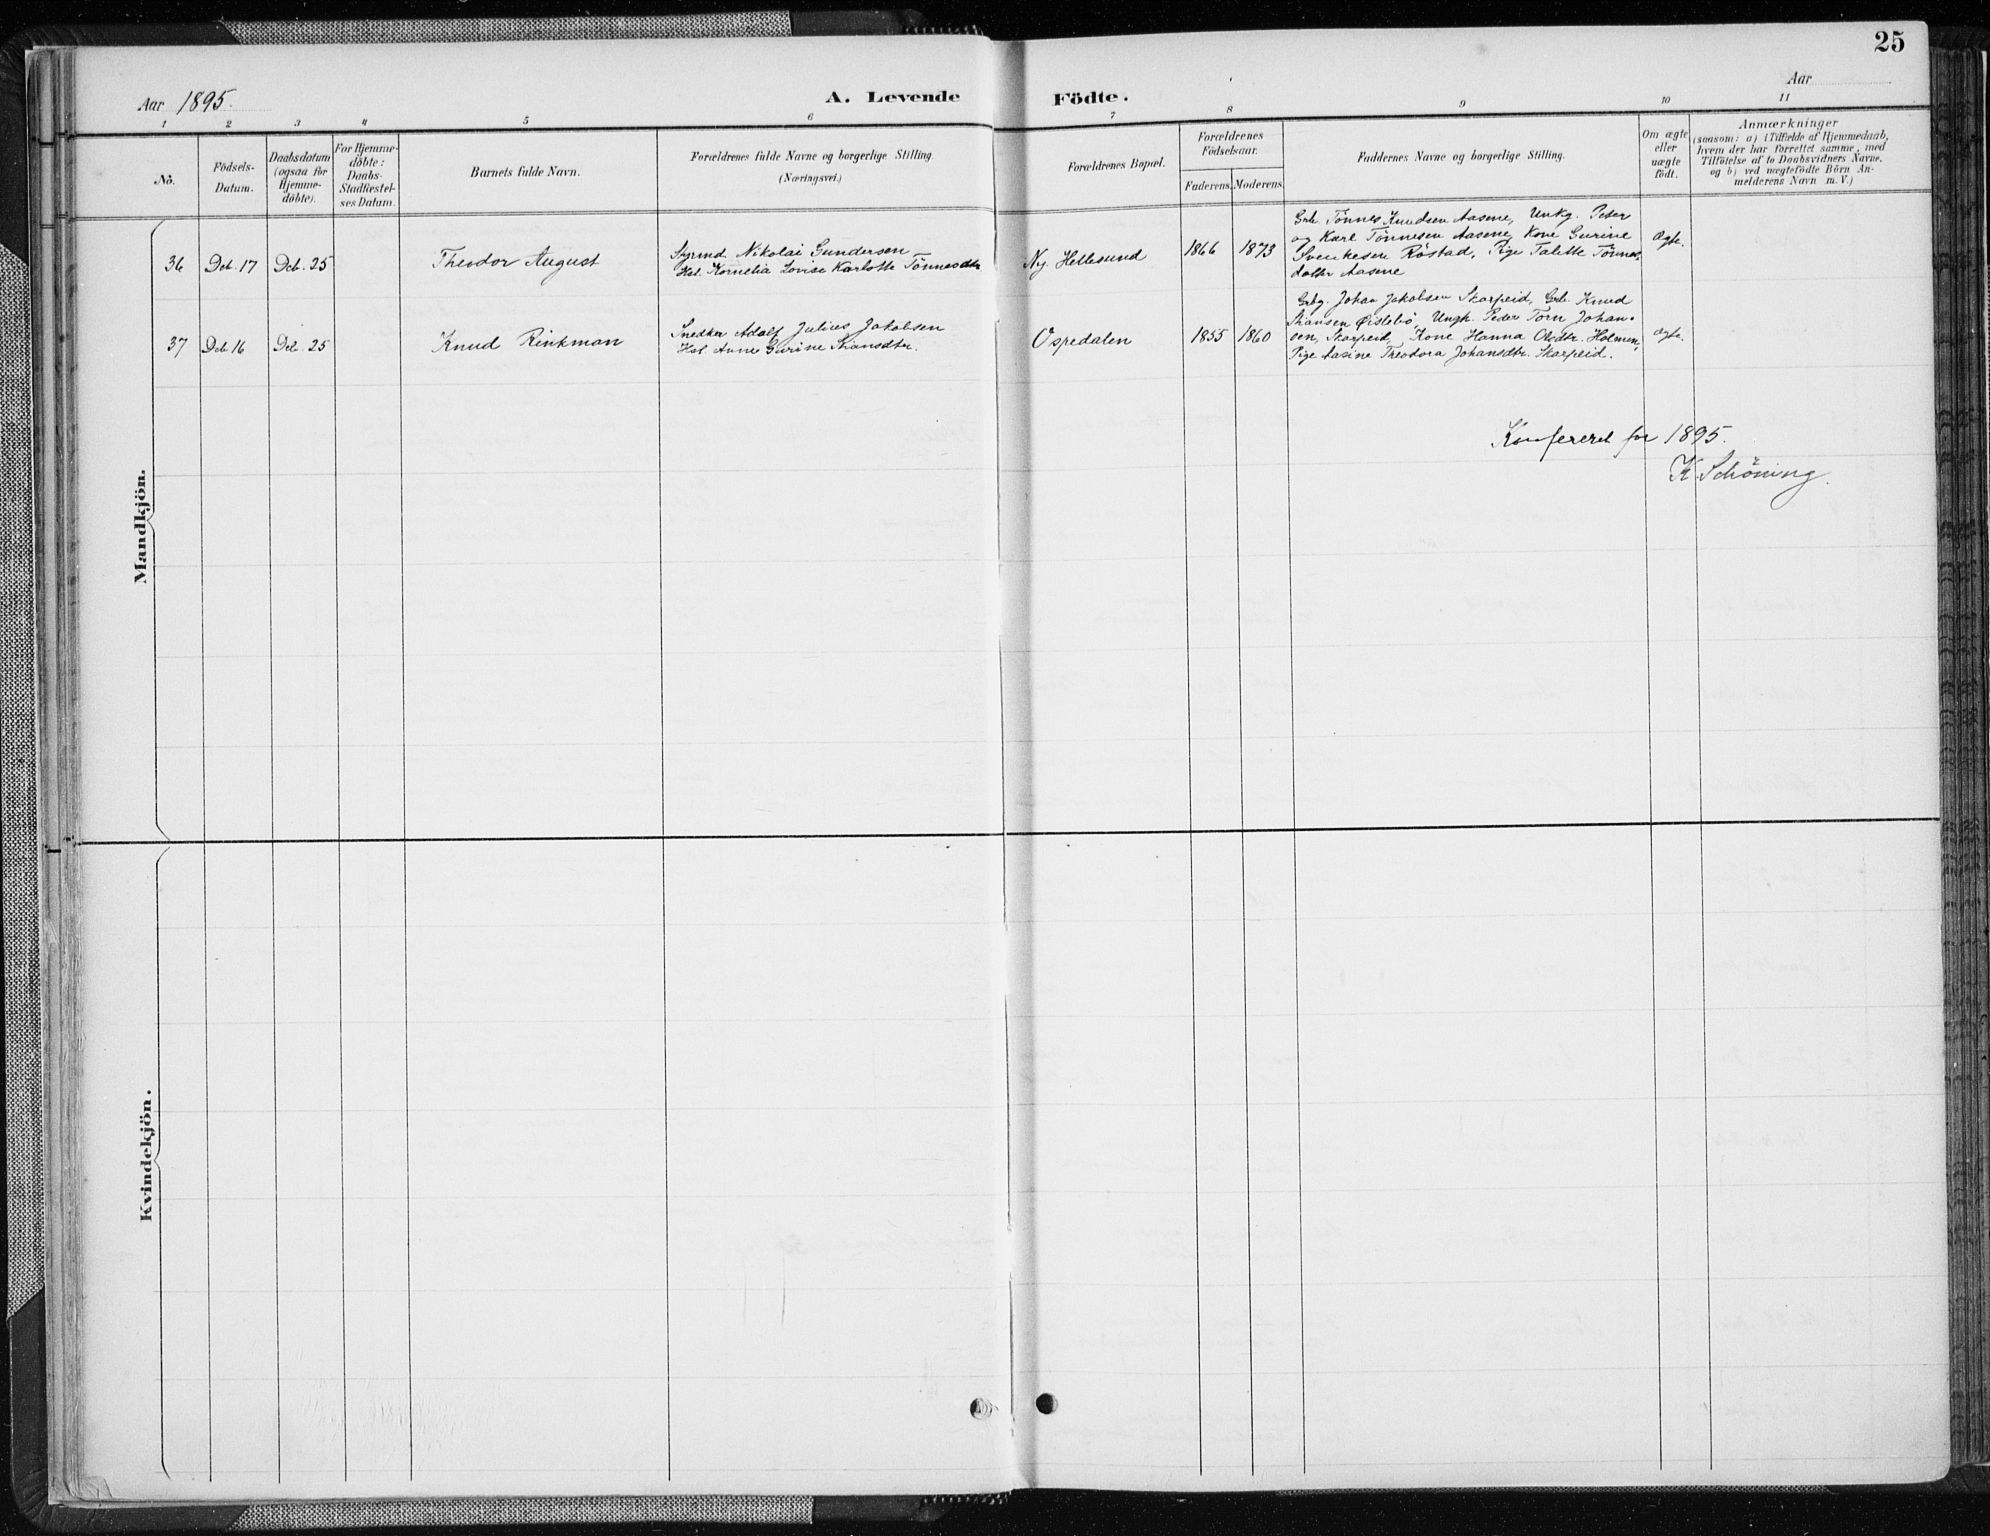 25
Aar 1895.
A. Levende Födte.
Aar
1 2 3 4 5 6 7 8 9 10 11
No.
Födsels-
Datum.
Daabsdatum
(ogsaa for
Hjemme-
döbte).
For Hjemme-
döbte:
Daabs-
Stadfæstel-
ses Datum.
Barnets fulde Navn.
Forældrenes fulde Navne og borgerlige Stilling.
(Næringsvei.)
Forældrenes Bopæl.
Forældrenes
Födselsaar.
Faderens. Moderens.
Faddernes Navne og borgerlige Stilling.
Om ægte
eller
uægte
födt.
Anmærkninger
(saasom: a) i Tilfælde af Hjemmedaab,
hvem der har forrettet samme, med
Tilföielse af to Daabsvidners Navne,
og b) ved uægtefödte Börn An-
melderens Navn m. V.)
Mandkjön.
36 Deb. 17 Deb. 25
Theodor August
Styrmd. Nikolai Gundersen
Hst. Kornelia Lovise Karlotte Tönnesdtr.
Ny Hellesund
1866 1873
Grb. Tönnes Knudsen Aasene, Unkg. Peder
og Karl Tönnesen Aasene, Kone Gurine
Svenkesen Röstad, Pige Talette Tönnes
datter Aasene
Ægte.
37 Deb 16 Deb. 25
Knud Rinkman
Snedker Adolf Julius Jakobsen
Hst. Anne Gurine
Ospedalen
1855 1860
Grbg. Johan Jakobsen Skarpeid, Grb. Knud
Öislebö, Ungk. Peder Tom Johan-
sen, Skarpeid, Kone Hanna Olsdtr. Holmen,
Pige Aasine Theodora Johansdtr. Skarpeid.
Ægte.
Konfereret for 1895.
K Schöning.
Kvindekjön.